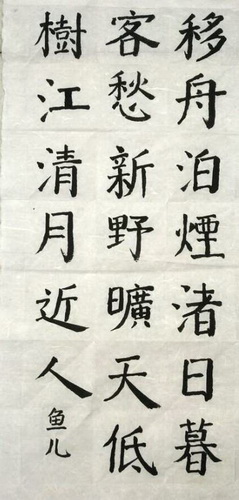 移舟泊煙渚日暮
客愁新野曠天低
樹江清月近人
鱼儿